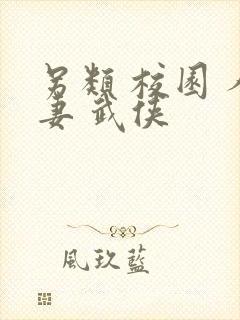 另類 校園 人
妻 武俠
風玖藍